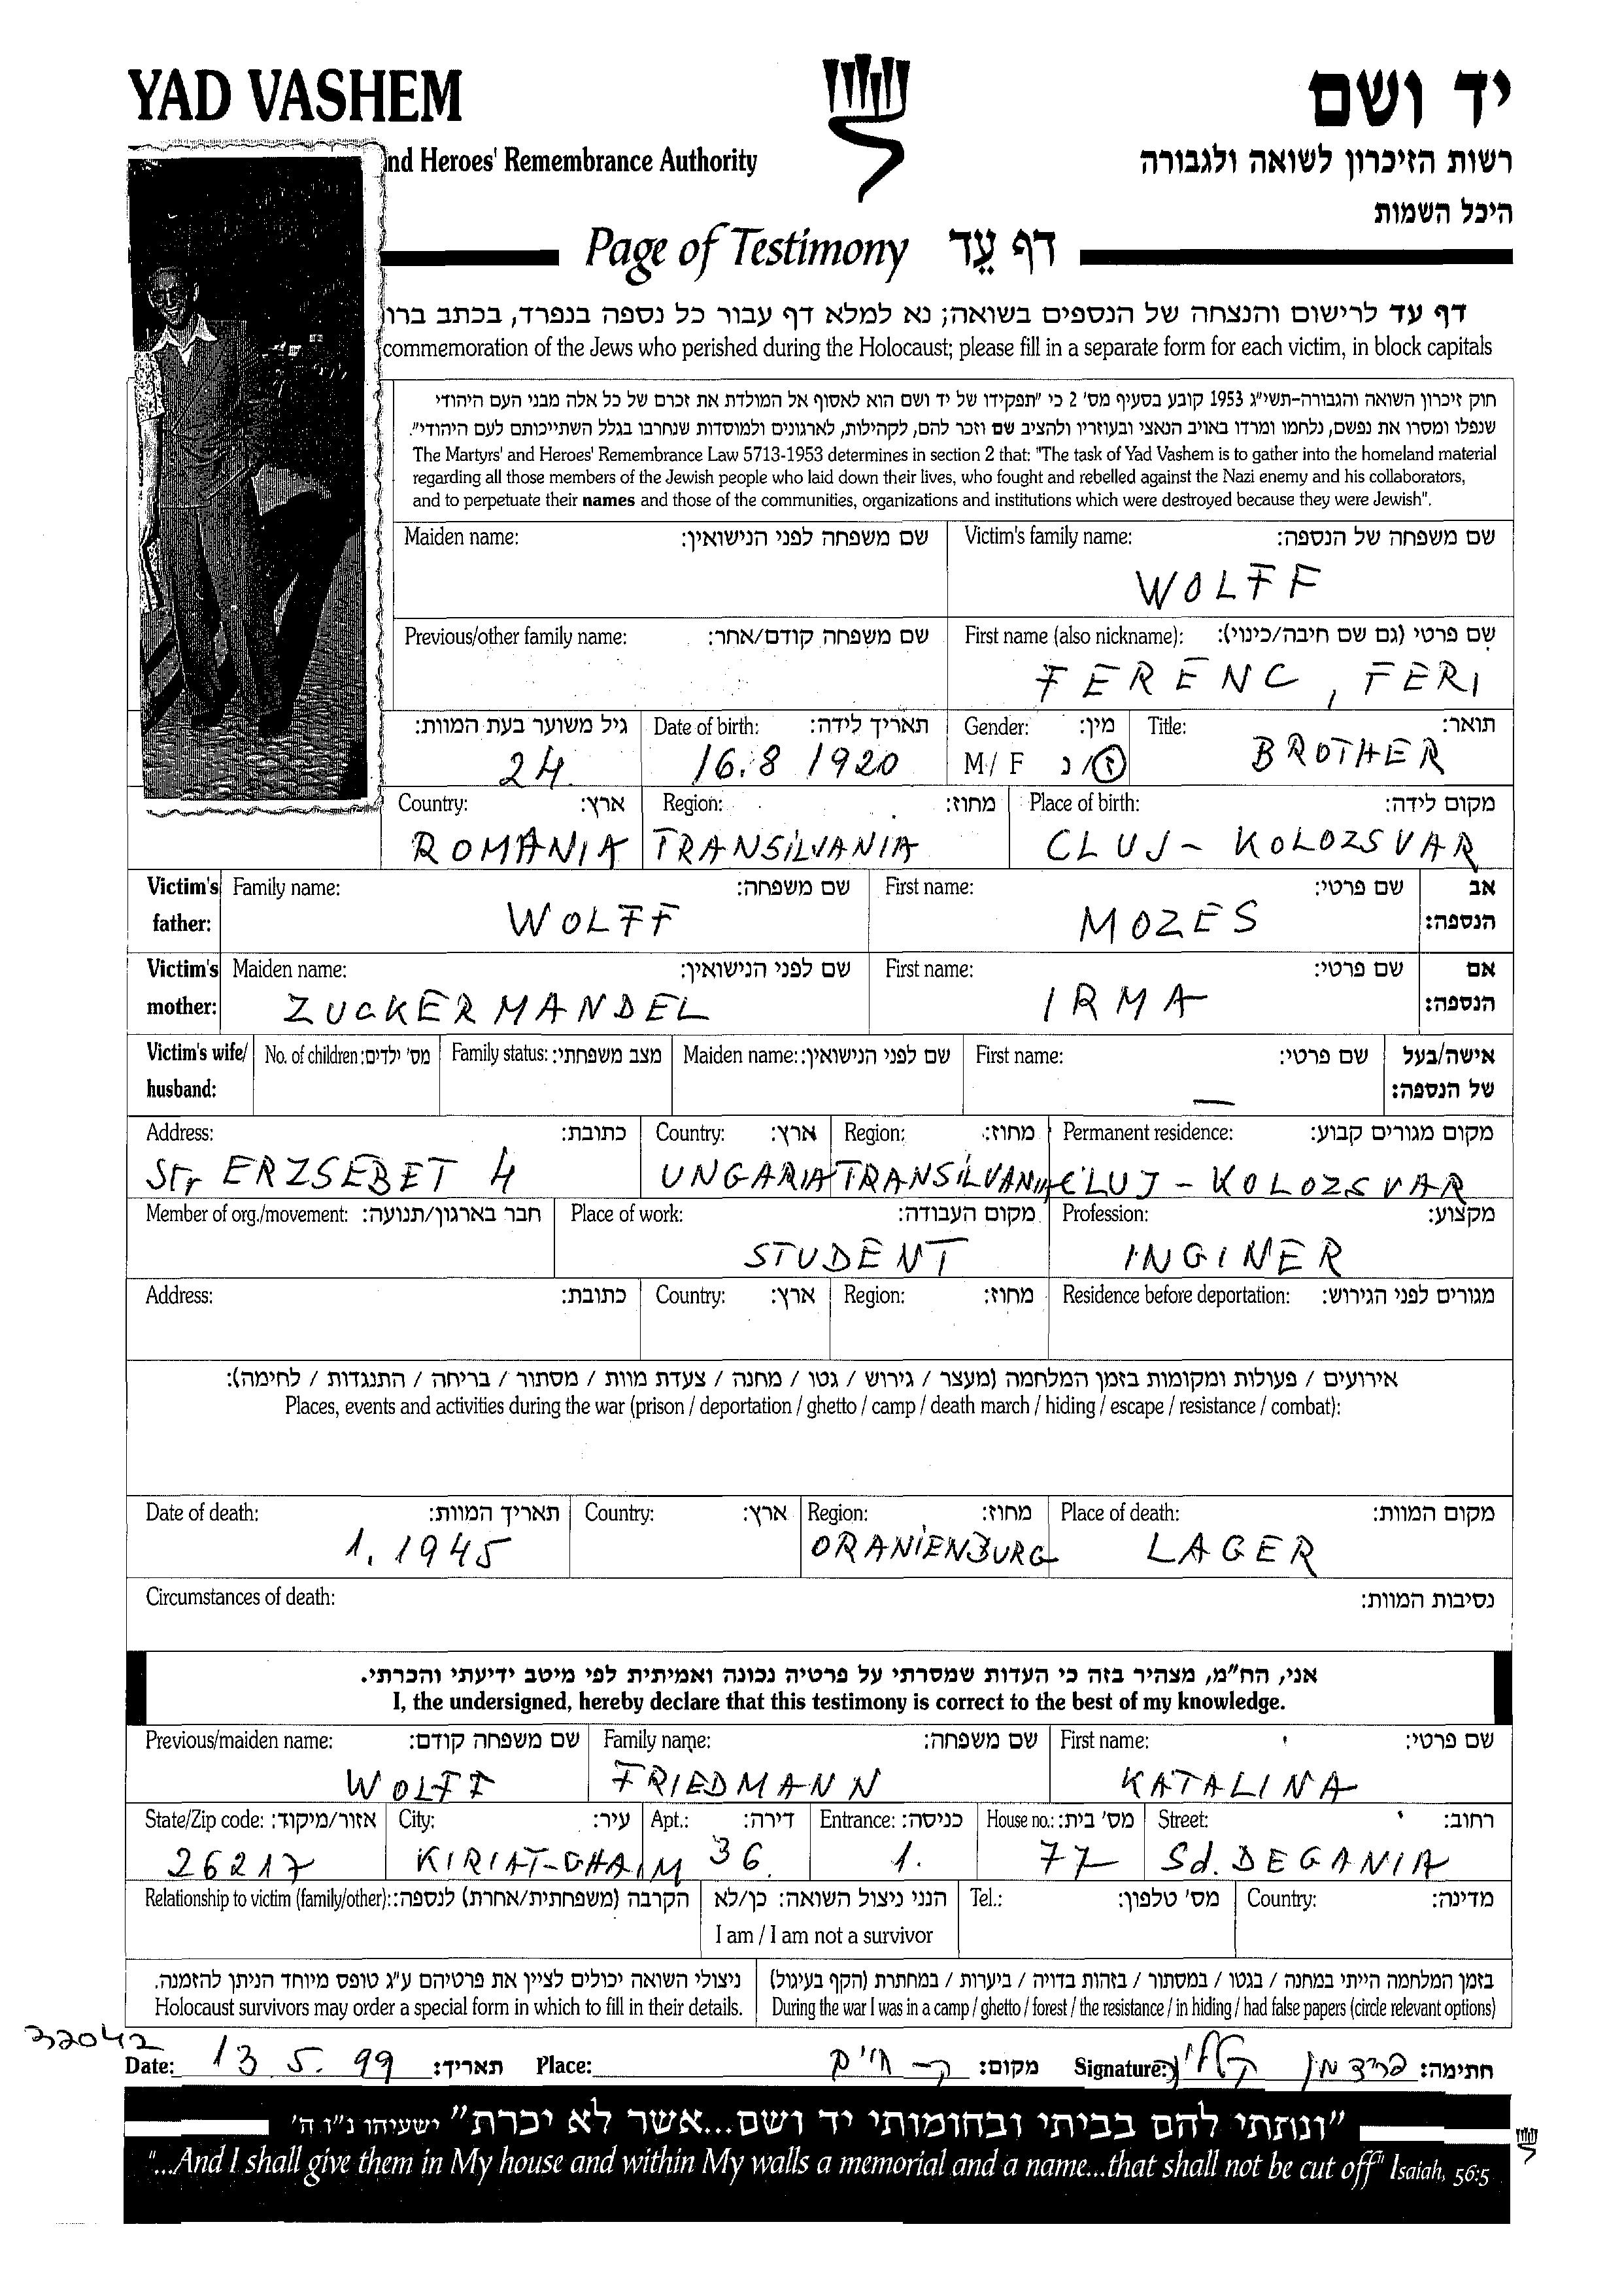 YAD VASHEM
יד ושם
nd Heroes' Remembrance Authority
רשות הזיכרון לשואה ולגבורה
היכל השמות
Page of Testimony דף עֵד
דף עד לרישום והנצחה של הנספים בשואה; נא למלא דף עבור כל נספה בנפרד, בכתב ברו
commemoration of the Jews who perished during the Holocaust; please fill in a separate form for each victim, in block capitals
חוק זיכרון השואה והגבורה-תשי"ג 1953 קובע בסעיף מס' 2 כי "תפקידו של יד ושם הוא לאסוף אל המולדת את זכרם של כל אלה מבני העם היהודי
שנפלו ומסרו את נפשם, נלחמו ומרדו באויב הנאצי ובעוזריו ולהציב שם וזכר להם, לקהילות, לארגונים ולמוסדות שנחרבו בגלל השתייכותם לעם היהודי".
The Martyrs' and Heroes' Remembrance Law 5713-1953 determines in section 2 that: "The task of Yad Vashem is to gather into the homeland material
regarding all those members of the Jewish people who laid down their lives, who fought and rebelled against the Nazi enemy and his collaborators,
and to perpetuate their names and those of the communities, organizations and institutions which were destroyed because they were Jewish".
Maiden name: שם משפחה לפני הנישואין: Victim's family name: שם משפחה של הנספה:
WOLFF
Previous/other family name: שם משפחה קודם/אחר: First name (also nickname): שם פרטי (גם שם חיבה/כינוי):
FERENC, FERI
גיל משוער בעת המוות: Date of birth: תאריך לידה: Gender: מין: Title: תואר:
24 16.8 1920 M/ F ז/נ BROTHER
Country: ארץ: Region: מחוז: Place of birth: מקום לידה:
ROMANIA TRANSILVANIA CLUJ - KOLOZSVAR
Victim's father: Family name: שם משפחה: First name: שם פרטי: אב הנספה:
WOLFF MOZES
Victim's mother: Maiden name: שם לפני הנישואין: First name: שם פרטי: אם הנספה:
ZUCKERMANDEL IRMA
Victim's wife/ husband: No. of children: מס' ילדים: Family status: מצב משפחתי: Maiden name: שם לפני הנישואין: First name: שם פרטי: אישה/בעל של הנספה:
—
Address: כתובת: Country: ארץ: Region: מחוז: Permanent residence: מקום מגורים קבוע:
Str ERZSEBET 4 UNGARIA TRANSILVANIA CLUJ - KOLOZSVAR
Member of org./movement: חבר בארגון/תנועה: Place of work: מקום העבודה: Profession: מקצוע:
STUDENT INGINER
Address: כתובת: Country: ארץ: Region: מחוז: Residence before deportation: מגורים לפני הגירוש:
אירועים / פעולות ומקומות בזמן המלחמה (מעצר / גירוש / גטו / מחנה / צעדת מוות / מסתור / בריחה / התנגדות / לחימה):
Places, events and activities during the war (prison / deportation / ghetto / camp / death march / hiding / escape / resistance / combat):
Date of death: תאריך המוות: Country: ארץ: Region: מחוז: Place of death: מקום המוות:
1. 1945 ORANIENBURG LAGER
Circumstances of death: נסיבות המוות:
אני, הח"מ, מצהיר בזה כי העדות שמסרתי על פרטיה נכונה ואמיתית לפי מיטב ידיעתי והכרתי.
I, the undersigned, hereby declare that this testimony is correct to the best of my knowledge.
Previous/maiden name: שם משפחה קודם: Family name: שם משפחה: First name: שם פרטי:
WOLFF FRIEDMANN KATALINA
State/Zip code: אזור/מיקוד: City: עיר: Apt.: דירה: Entrance: כניסה: House no.: מס' בית: Street: רחוב:
26217 KIRIAT-GHAIM 36 1. 77 Sd. DEGANIA
Relationship to victim (family/other): הקרבה (משפחתית/אחרת) לנספה: הנני ניצול השואה: כן/לא Tel.: מס' טלפון: Country: מדינה:
I am / I am not a survivor
ניצולי השואה יכולים לציין את פרטיהם ע"ג טופס מיוחד הניתן להזמנה. בזמן המלחמה הייתי במחנה / בגטו / במסתור / בזהות בדויה / ביערות / במחתרת (הקף בעיגול)
Holocaust survivors may order a special form in which to fill in their details. During the war I was in a camp / ghetto / forest / the resistance / in hiding / had false papers (circle relevant options)
32042
Date: 13 5. 99 תאריך: Place: ק- חיים מקום: Signature: פרידמן קטלין חתימה:
"ונתתי להם בביתי ובחומותי יד ושם...אשר לא יכרת" ישעיהו נ"ו ה'
"...And I shall give them in My house and within My walls a memorial and a name...that shall not be cut off" Isaiah, 56:5